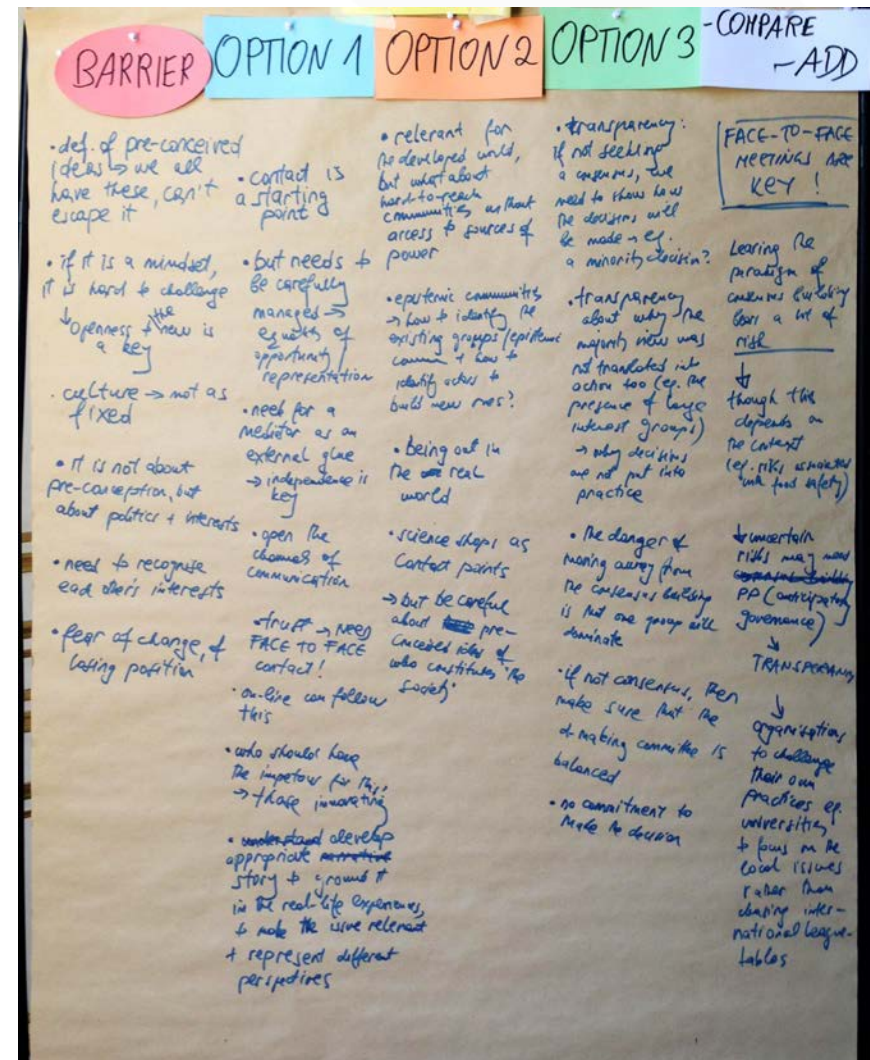 BARRIER
OPTION 1
OPTION 2
OPTION 3
-COMPARE
-ADD
• def. of pre-conceived
ideas → we all
have these, can't
escape it
• if it is a mindset,
it is hard to challenge
↳ openness to the new is
a key
• culture → not as
fixed
• It is not about
pre-conception, but
about politics + interests
• need to recognise
each other's interests
• fear of change, of
losing position
• contact is
a starting
point
• but needs to
be carefully
managed →
equality of
opportunity /
representation
• need for a
mediator as an
external glue
→ independence is
key
• open the
channels of
communication
• trust → NEED
FACE TO FACE
contact!
• on-line can follow
this
• who should have
the impetous for this,
→ those innovating
• understand develop
appropriate narrative
story to ground it
in the real-life experiences,
to make the issue relevant
+ represent different
perspectives
• relevant for
the developed world,
but what about
hard-to-reach
communities without
access to sources of
power
• epistemic communities
→ how to identify the
existing groups/epistemic
comm. + how to
identify actors to
build new ones?
• being out in
the real
world
• science shops as
contact points
→ but be careful
about pre-
conceived ideas of
who constitutes "the
society"
• transparency:
if not seeking
a consensus, we
need to show how
the decisions will
be made → eg.
a minority decision?
• transparency
about why the
majority view was
not translated into
action too (eg. the
presence of large
interest groups)
→ why decisions
are not put into
practice
• the danger of
moving away from
the consensus building
is that one group will
dominate
• if not consensus, then
make sure that the
d-making committe is
balanced
• no commitment to
make the decision
FACE-TO-FACE
MEETINGS ARE
KEY!
Leaving the
paradigm of
consensus building
bears a lot of
risk
↓
though this
depends on
the context
(eg. risks associated
with food safety)
↓ uncertain
risks may need
consensus building
PP (anticipatory
governance)
↓
TRANSPERANCY
↓
organisations
to challenge
their own
practices eg.
universities
to focus on the
local issues
rather than
chasing inter-
national league-
tables